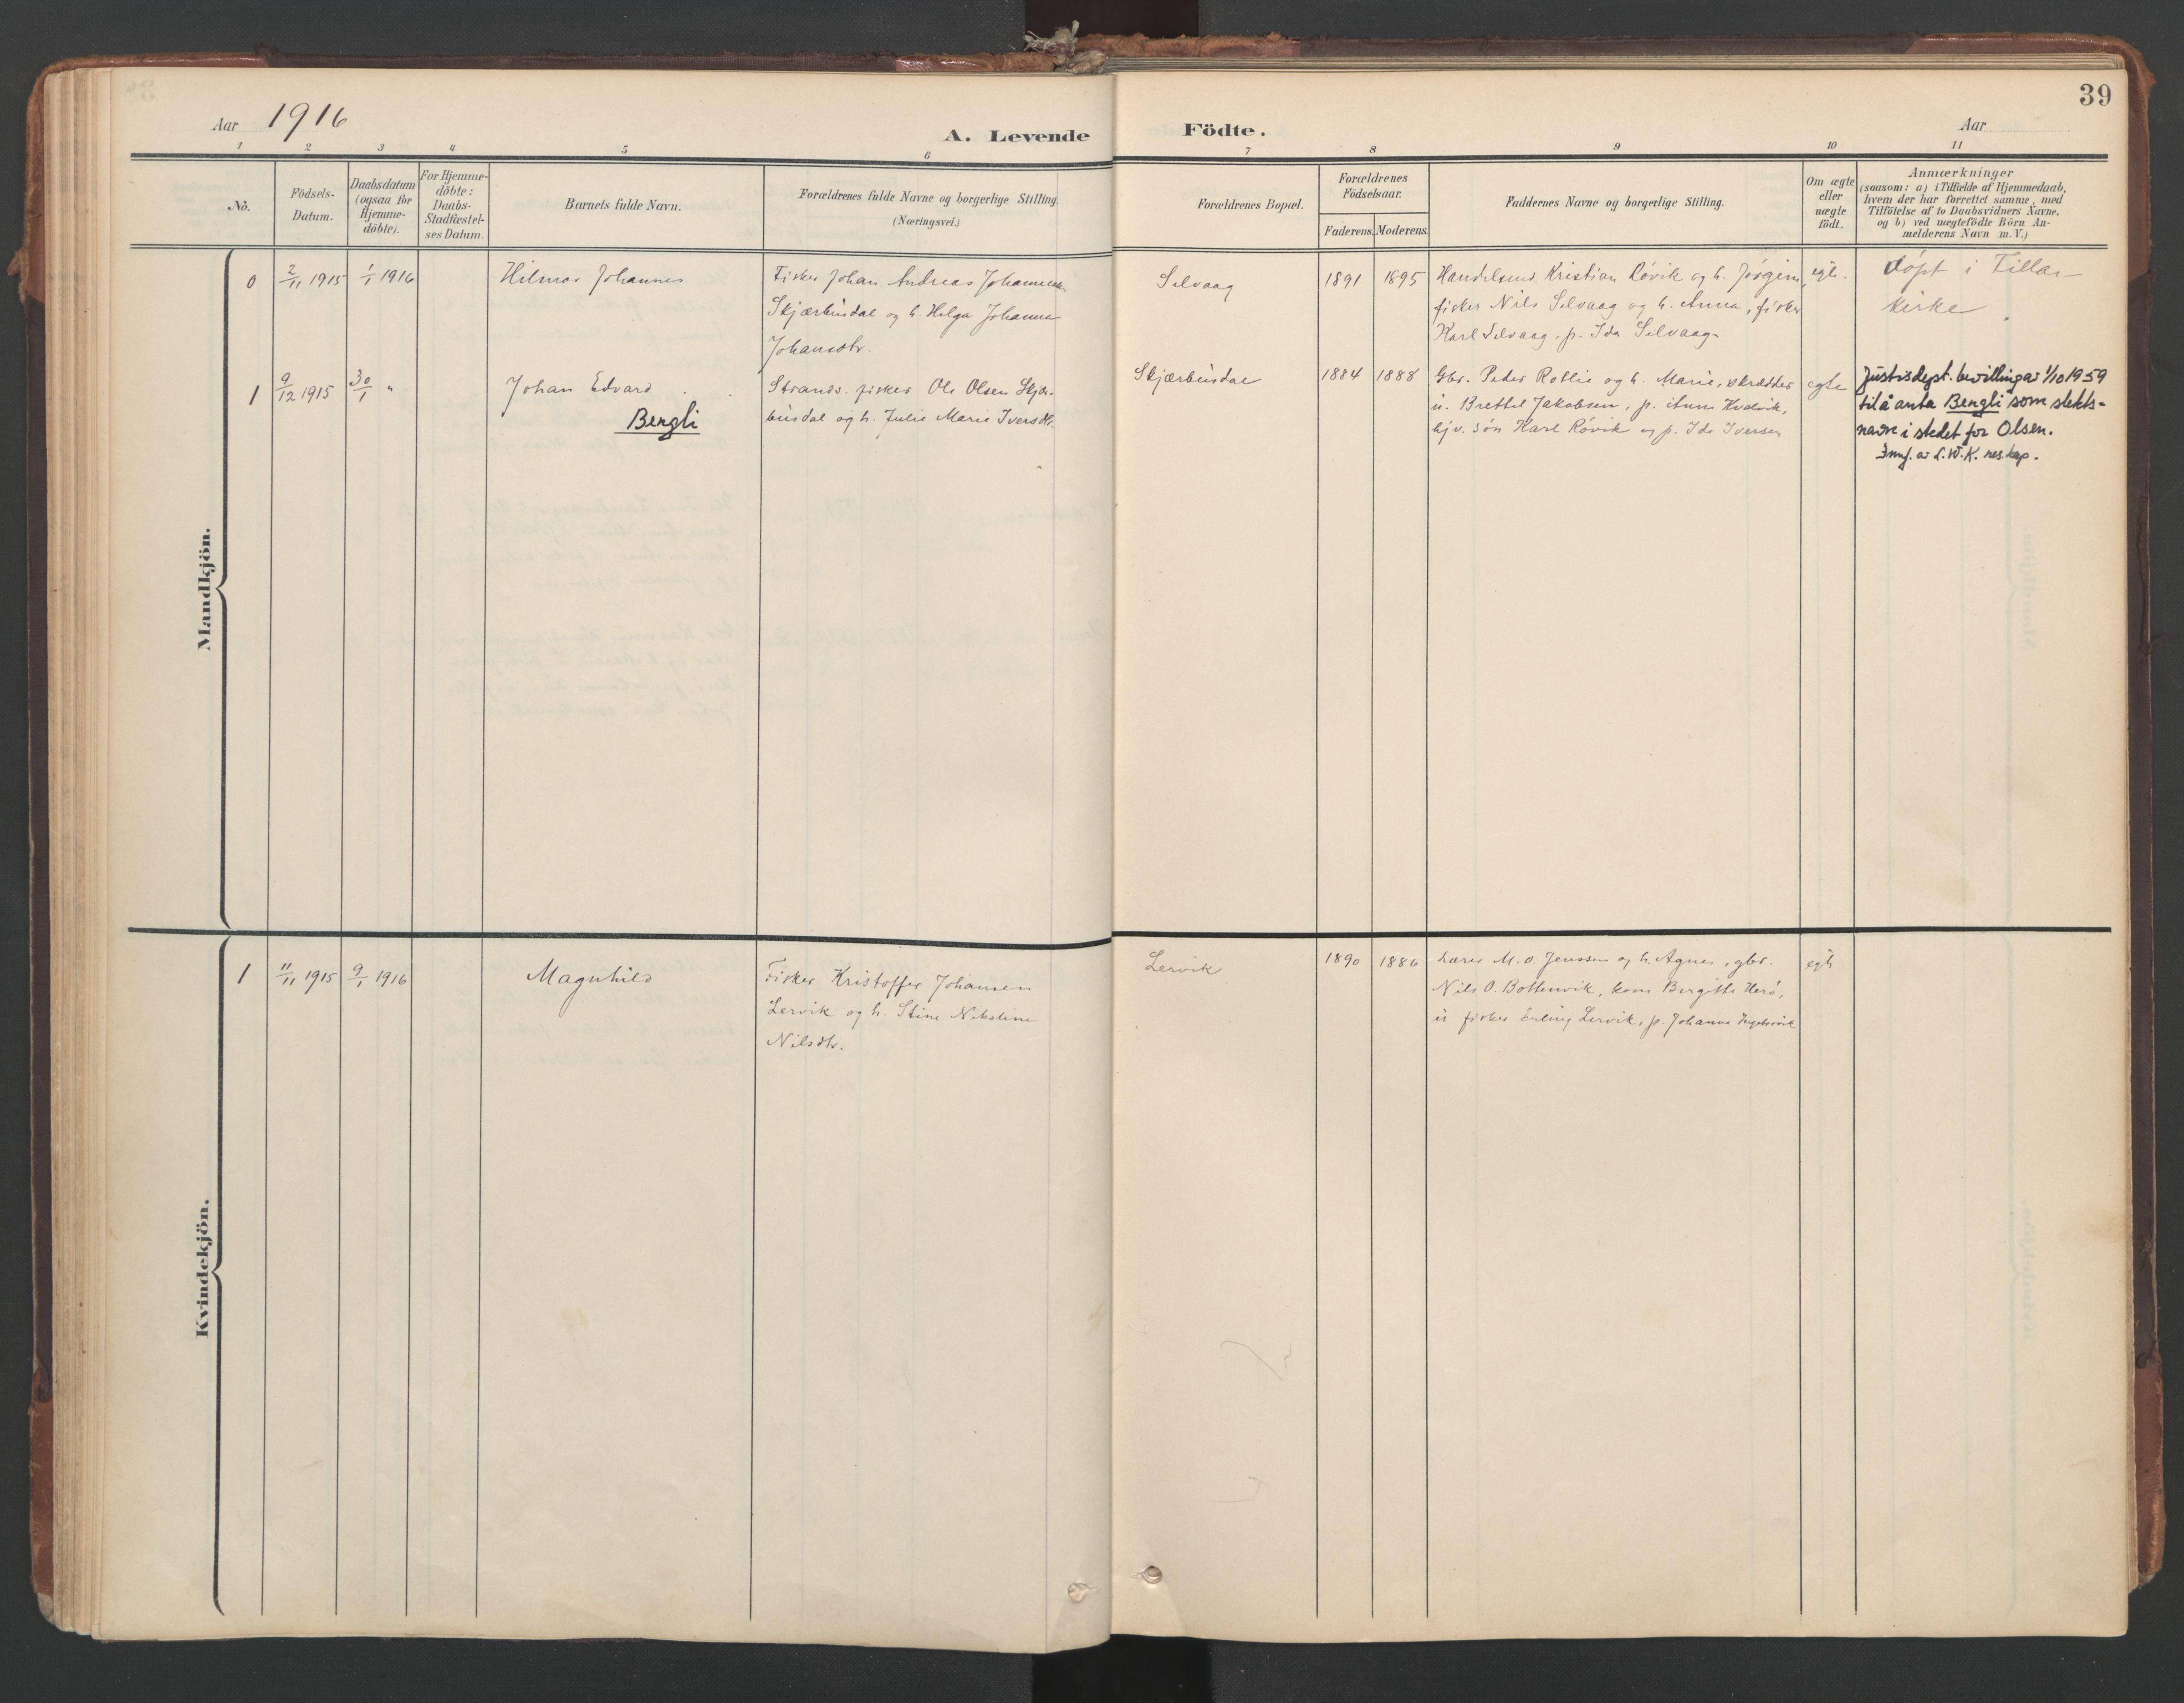 39
Aar 1916
A. Levende Födte.
Aar
1 2 3 4 5 6 7 8 9 10 11
No.
Födsels-
Datum.
Daabsdatum
(ogsaa for
Hjemme-
döbte).
For Hjemme-
döbte:
Daabs-
Stadfæstel-
ses Datum.
Barnets fulde Navn.
Forældrenes fulde Navne og borgerlige Stilling.
(Næringsvei.)
Forældrenes Bopæl.
Forældrenes
Födselsaar.
Faderens. Moderens.
Faddernes Navne og borgerlige Stilling.
Om ægte
eller
uægte
födt.
Anmærkninger
(saasom: a) i Tilfælde af Hjemmedaab,
hvem der har forrettet samme, med
Tilföielse af to Daabsvidners Navne,
og b) ved uægtefödte Börn An-
melderens Navn m. V.)
Mandkjön.
0 2/11 1915 1/1 1916 Hilmar Johannes
Fisker Johan Andreas Johannesen
Skjærbusdal og h. Helga Johanna
Johansdtr.
Selvaag 1891 1895
Handelsmd. Kristian Røvik og h. Jørgine,
fisker Nils Selvaag og h. Anna, fisker
Karl Selvaag, p. Ida Selvaag
egte.
døpt i Fillan
kirke.
1 9/12 1915 30/1 " Johan Edvard
Bengli
Strands. fisker Ole Olsen Skjær-
busdal og h. Julie Marie Iversdtr.
Skjærbusdal 1884 1888
Gbr. Peder Rotlie og h. Marie, skrædder
u. Brettel Jakobsen, p. Anna Kvalvik,
hjv. søn Karl Røvik og p. Ida Iversen
egte
Justisdept. bevilling av 1/10 1959
til å anta Bengli som slekts-
navn i stedet for Olsen.
Innf. av L.W.K. res.kap.
Kvindekjön.
1 11/11 1915 9/1 1916 Magnhild
Fisker Kristoffer Johansen
Lervik og h. Stine Nikoline
Nilsdtr.
Lervik 1890 1886
Lærer M.O. Jenssen og h. Agnes, gbr.
Nils O. Bottenvik, kone Birgitte Herø,
u. fisker Erling Lervik, p. Johanna
egte